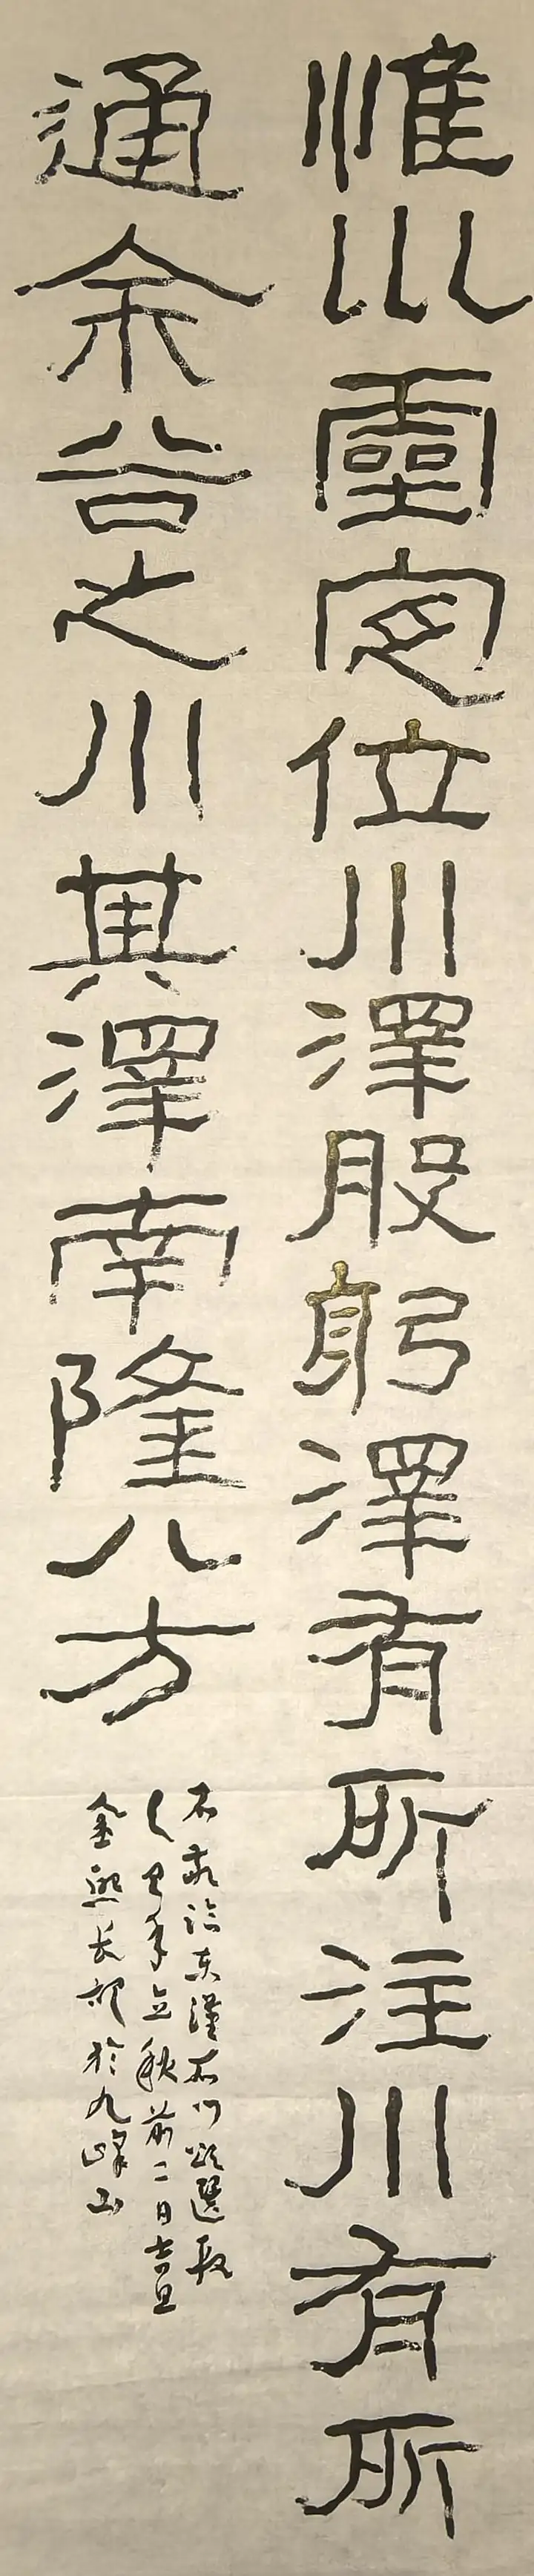 惟巛靈定位川澤股躬澤有所注川有所
通余谷之川其澤南隆八方
臨東漢石門頌選段
乙巳年立秋前二日吉旦
於九峰山